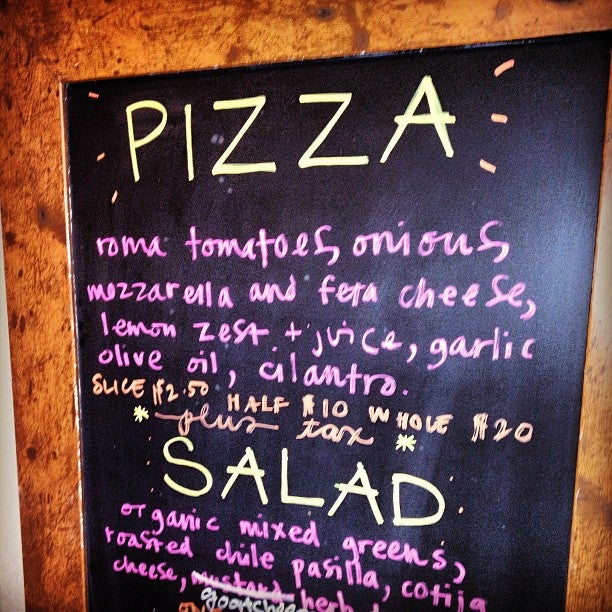 PIZZA
roma tomatoes, onions,
mozzarella and feta cheese,
lemon zest + juice, garlic
olive oil, cilantro.
SLICE $2.50 HALF $10 WHOLE $20
* plus tax *
SALAD
organic mixed greens,
roasted chile pasilla, cotija
cheese, mustard herb